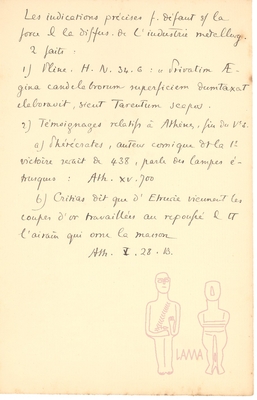 Les indications précises f. défaut s/ la
force & la diffus. de l'industrie métallurg.
2 faits :
1) Pline. H. N. 34. 6 : « Privatim Æ-
gina candelabrorum superficiem dumtaxat
elaboravit, sicut Tarentum scapos.
2) Témoignages relatifs à Athènes, fin du Vᵉ s.
a) Phérécrates, auteur comique dt la 1ᵉ
victoire serait de 438, parle des lampes é-
trusques : Ath. XV. 700
b) Critias dit que d'Etrurie viennent les
coupes d'or travaillées au repoussé & tt
l'airain qui orne la maison
Ath. I. 28. B.
LAMA